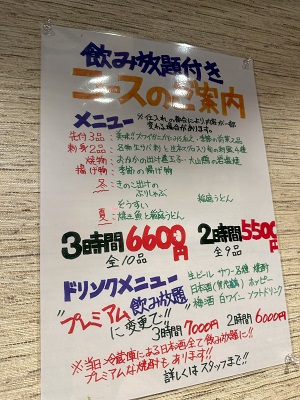 飲み放題付き
コースのご案内
メニュー ※仕入れの都合により内容が一部
変わる場合があります。
先付3品:
刺身2品:
焼物: おかかの出汁巻玉子・大山鶏の岩塩焼
揚げ物: 季節の揚げ物
冬: きのこ出汁の
ぶりしゃぶ 稲庭うどん
ぞうすい
夏: 焼き魚と稲庭うどん
3時間6600円 2時間5500円
全10品 全9品
ドリンクメニュー 生ビール サワー各種 焼酎
日本酒 ホッピー
"プレミアム飲み放題" 梅酒 白ワイン ソフトドリンク
に変更で!!
3時間7000円 2時間6000円
※当日冷蔵庫にある日本酒全て飲み放題に!!
プレミアムな焼酎もあります!!
詳しくはスタッフまで!!